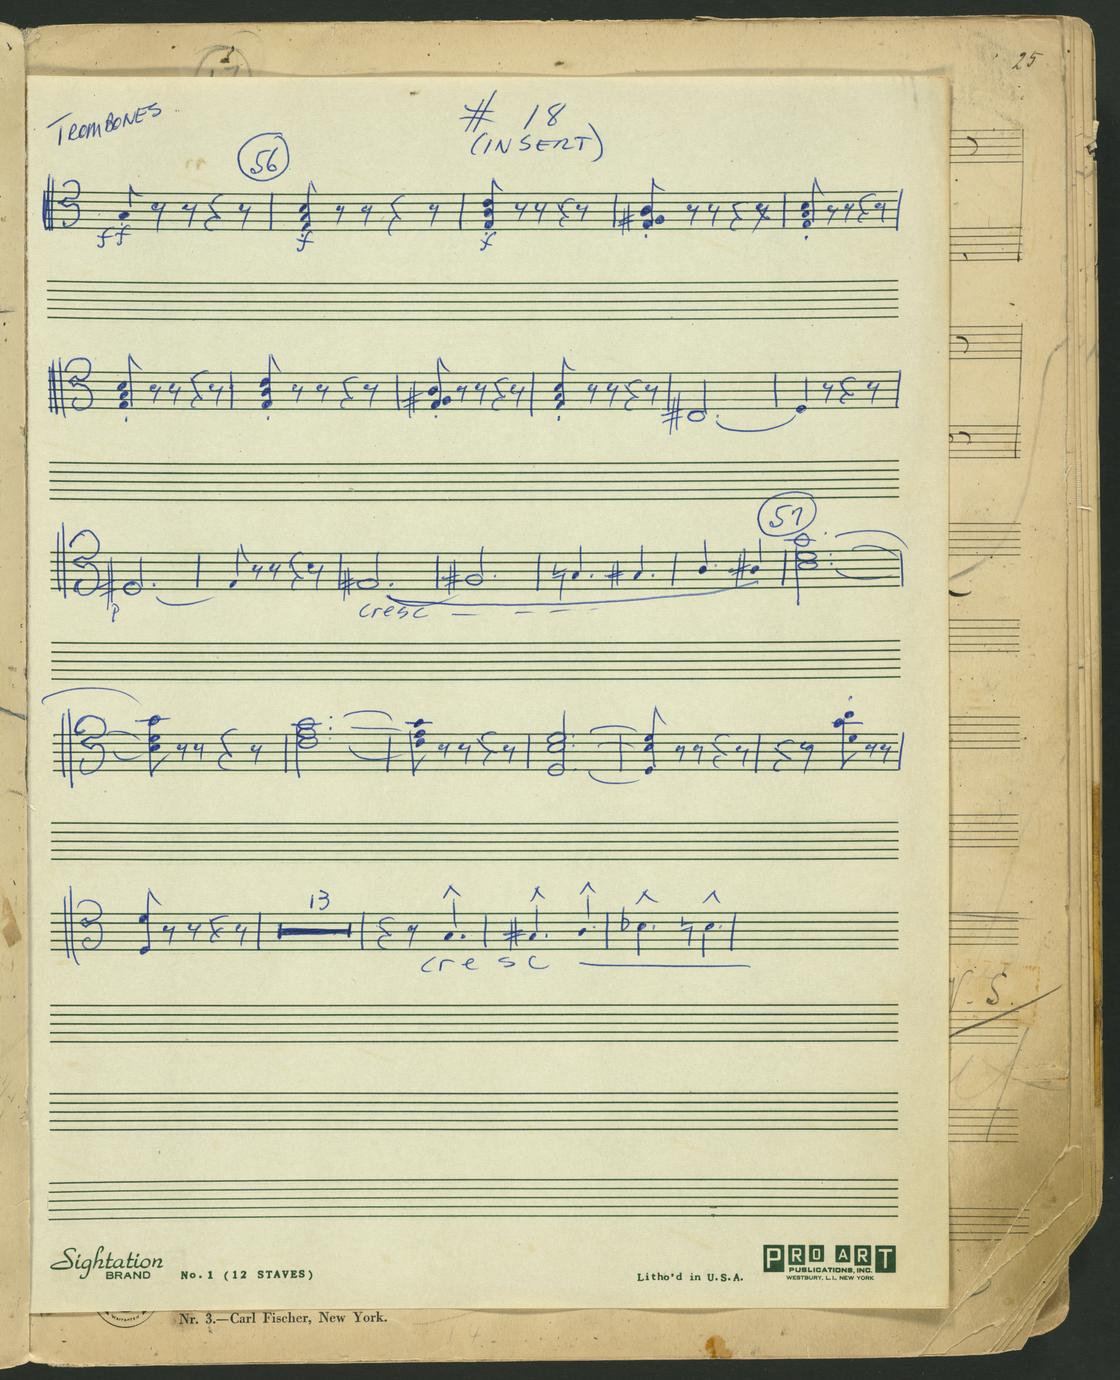 25
TROMBONES
# 18
(INSERT)
56
ff
f
f
57
p
cresc
13
cresc
V. S.
Sightation
BRAND
No. 1 (12 STAVES)
Litho'd in U.S.A.
PRO ART
PUBLICATIONS, INC.
WESTBURY, L.I., NEW YORK
Nr. 3.—Carl Fischer, New York.